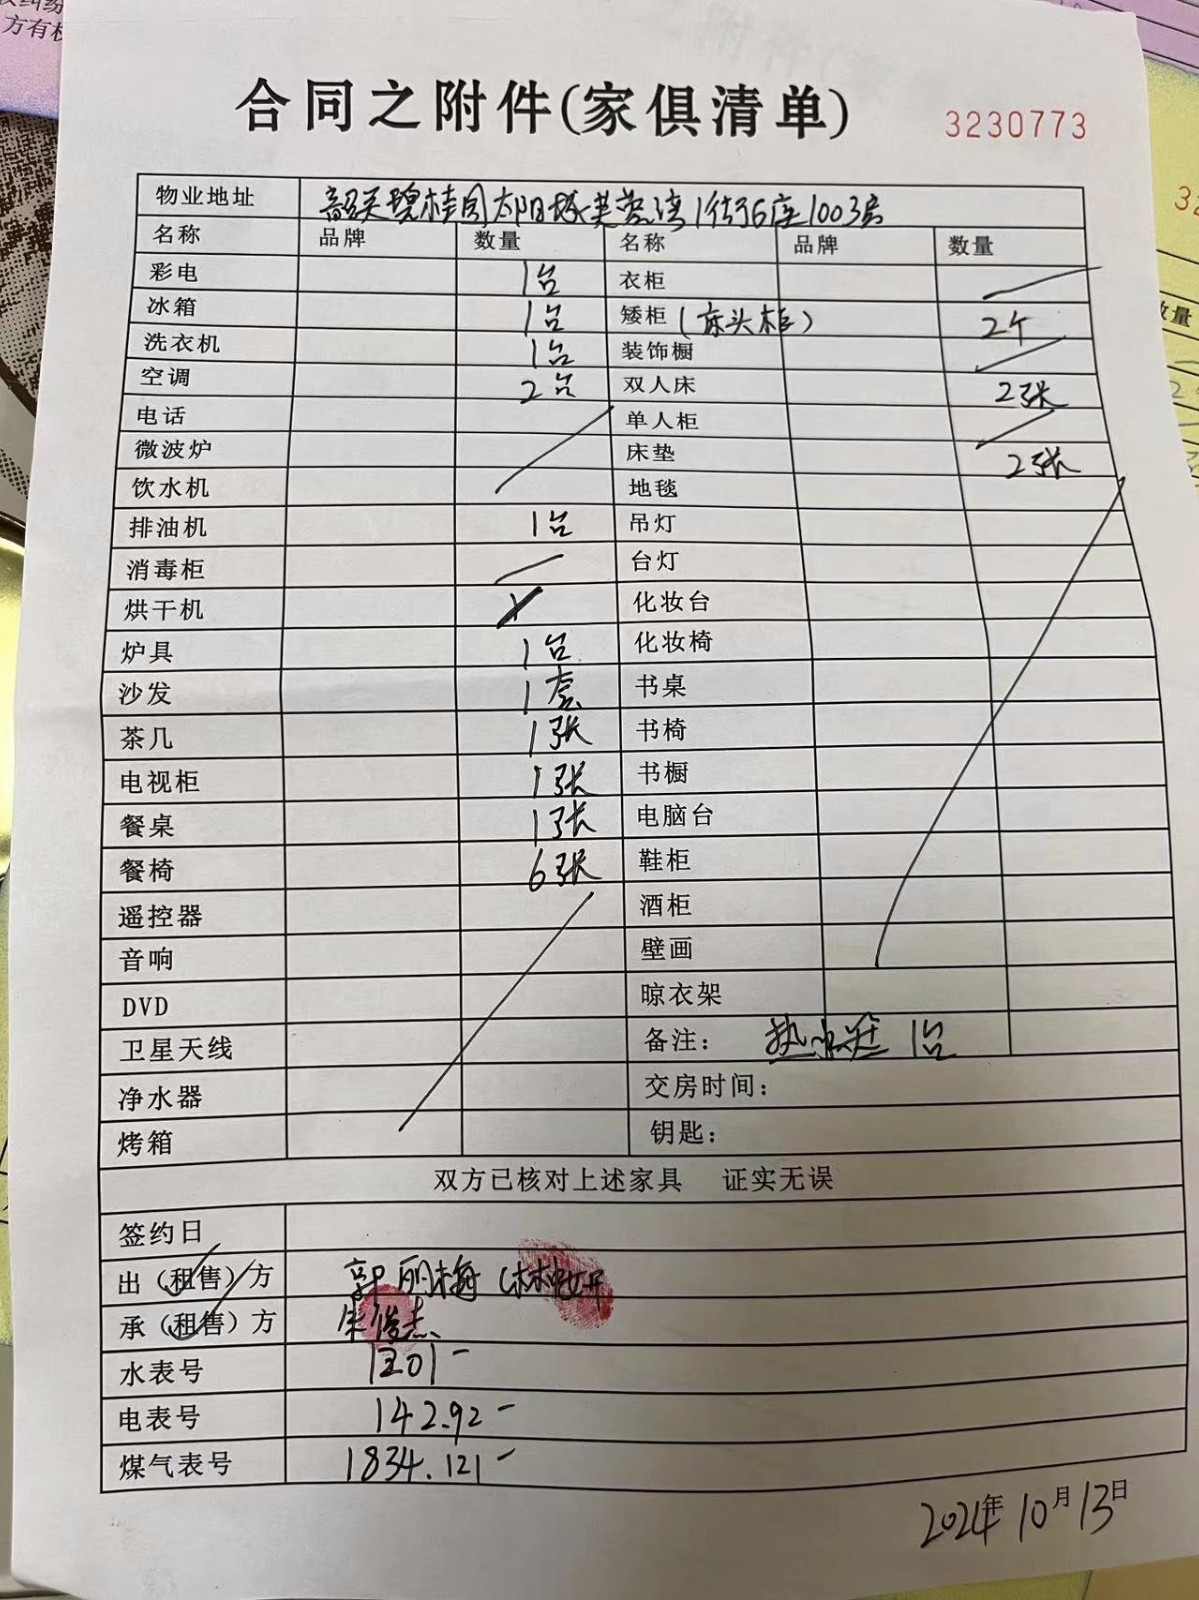 合同之附件(家俱清单)
3230773
物业地址 韶关碧桂园太阳城芙蓉湾1街6座1003房
名称 品牌 数量 名称 品牌 数量
彩电 1台 衣柜
冰箱 1台 矮柜(床头柜) 2个
洗衣机 1台 装饰橱
空调 2台 双人床 2张
电话 单人柜
微波炉 床垫 2张
饮水机 地毯
排油机 1台 吊灯
消毒柜 台灯
烘干机 化妆台
炉具 1台 化妆椅
沙发 1套 书桌
茶几 1张 书椅
电视柜 1张 书橱
餐桌 1张 电脑台
餐椅 6张 鞋柜
遥控器 酒柜
音响 壁画
DVD 晾衣架
卫星天线 备注: 热水炉 1台
净水器 交房时间:
烤箱 钥匙:
双方已核对上述家具 证实无误
签约日
出(租售)方 郭丽梅(林
承(租售)方 朱俊杰
水表号 1201-
电表号 142.92-
煤气表号 1834.121-
2021年10月13日
方有
数量